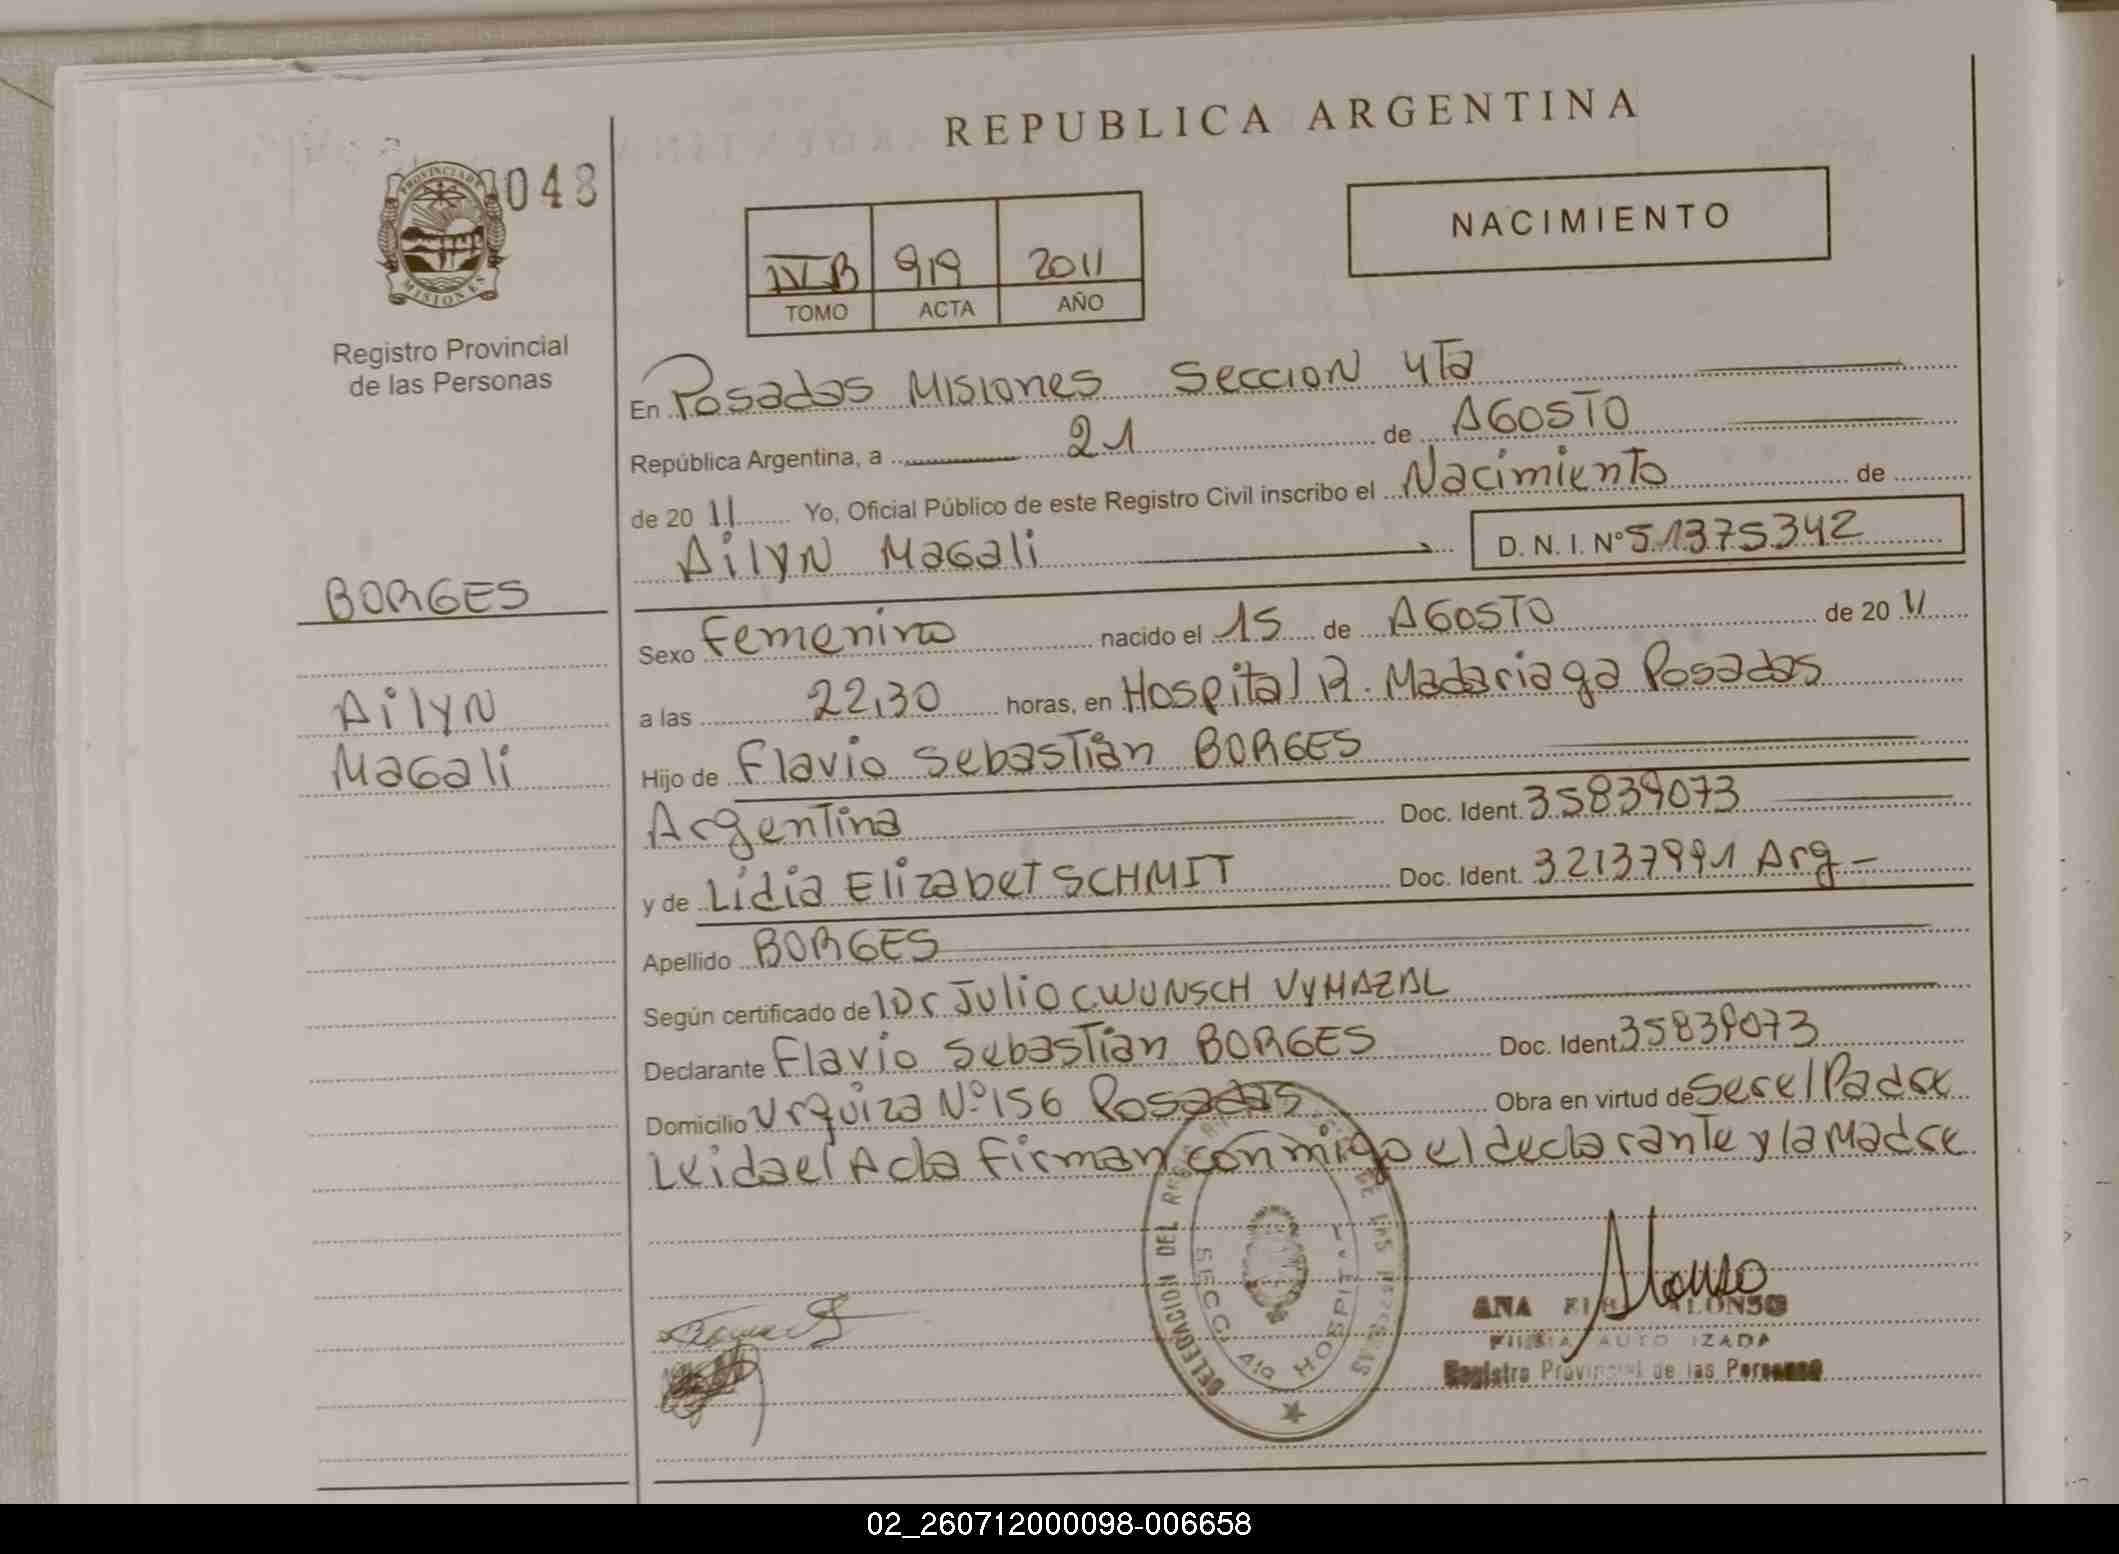 REPUBLICA ARGENTINA
048
PROVINCIA DE
MISIONES
NACIMIENTO
IV B 919 2011
TOMO ACTA AÑO
Registro Provincial
de las Personas
En Posadas Misiones Seccion 4Ta
República Argentina, a 21 de AGOSTO
de 20 11 Yo, Oficial Público de este Registro Civil inscribo el Nacimiento de
Ailyn Magali D. N. I. Nº 51375342
BORGES
Sexo Femenino nacido el 15 de AGOSTO de 20 11
Ailyn
a las 22,30 horas, en Hospital R. Madariaga Posadas
Magali
Hijo de Flavio Sebastián BORGES
Argentina Doc. Ident. 35839073
y de Lidia Elizabet SCHMIT Doc. Ident. 32137991 Arg -
Apellido BORGES
Según certificado de Dr Julio C WUNSCH VYMAZAL
Declarante Flavio Sebastián BORGES Doc. Ident 35839073
Domicilio Urquiza Nº 156 Posadas Obra en virtud de Ser el Padre
Leida el Acta Firman conmigo el declarante y la Madre
DELEGACION DEL DE LAS
SECC. 4ta HOSPITAL
Alonso
ANA ALONSO
FIRMA AUTORIZADA
Registro Provincial de las Personas
02_260712000098-006658